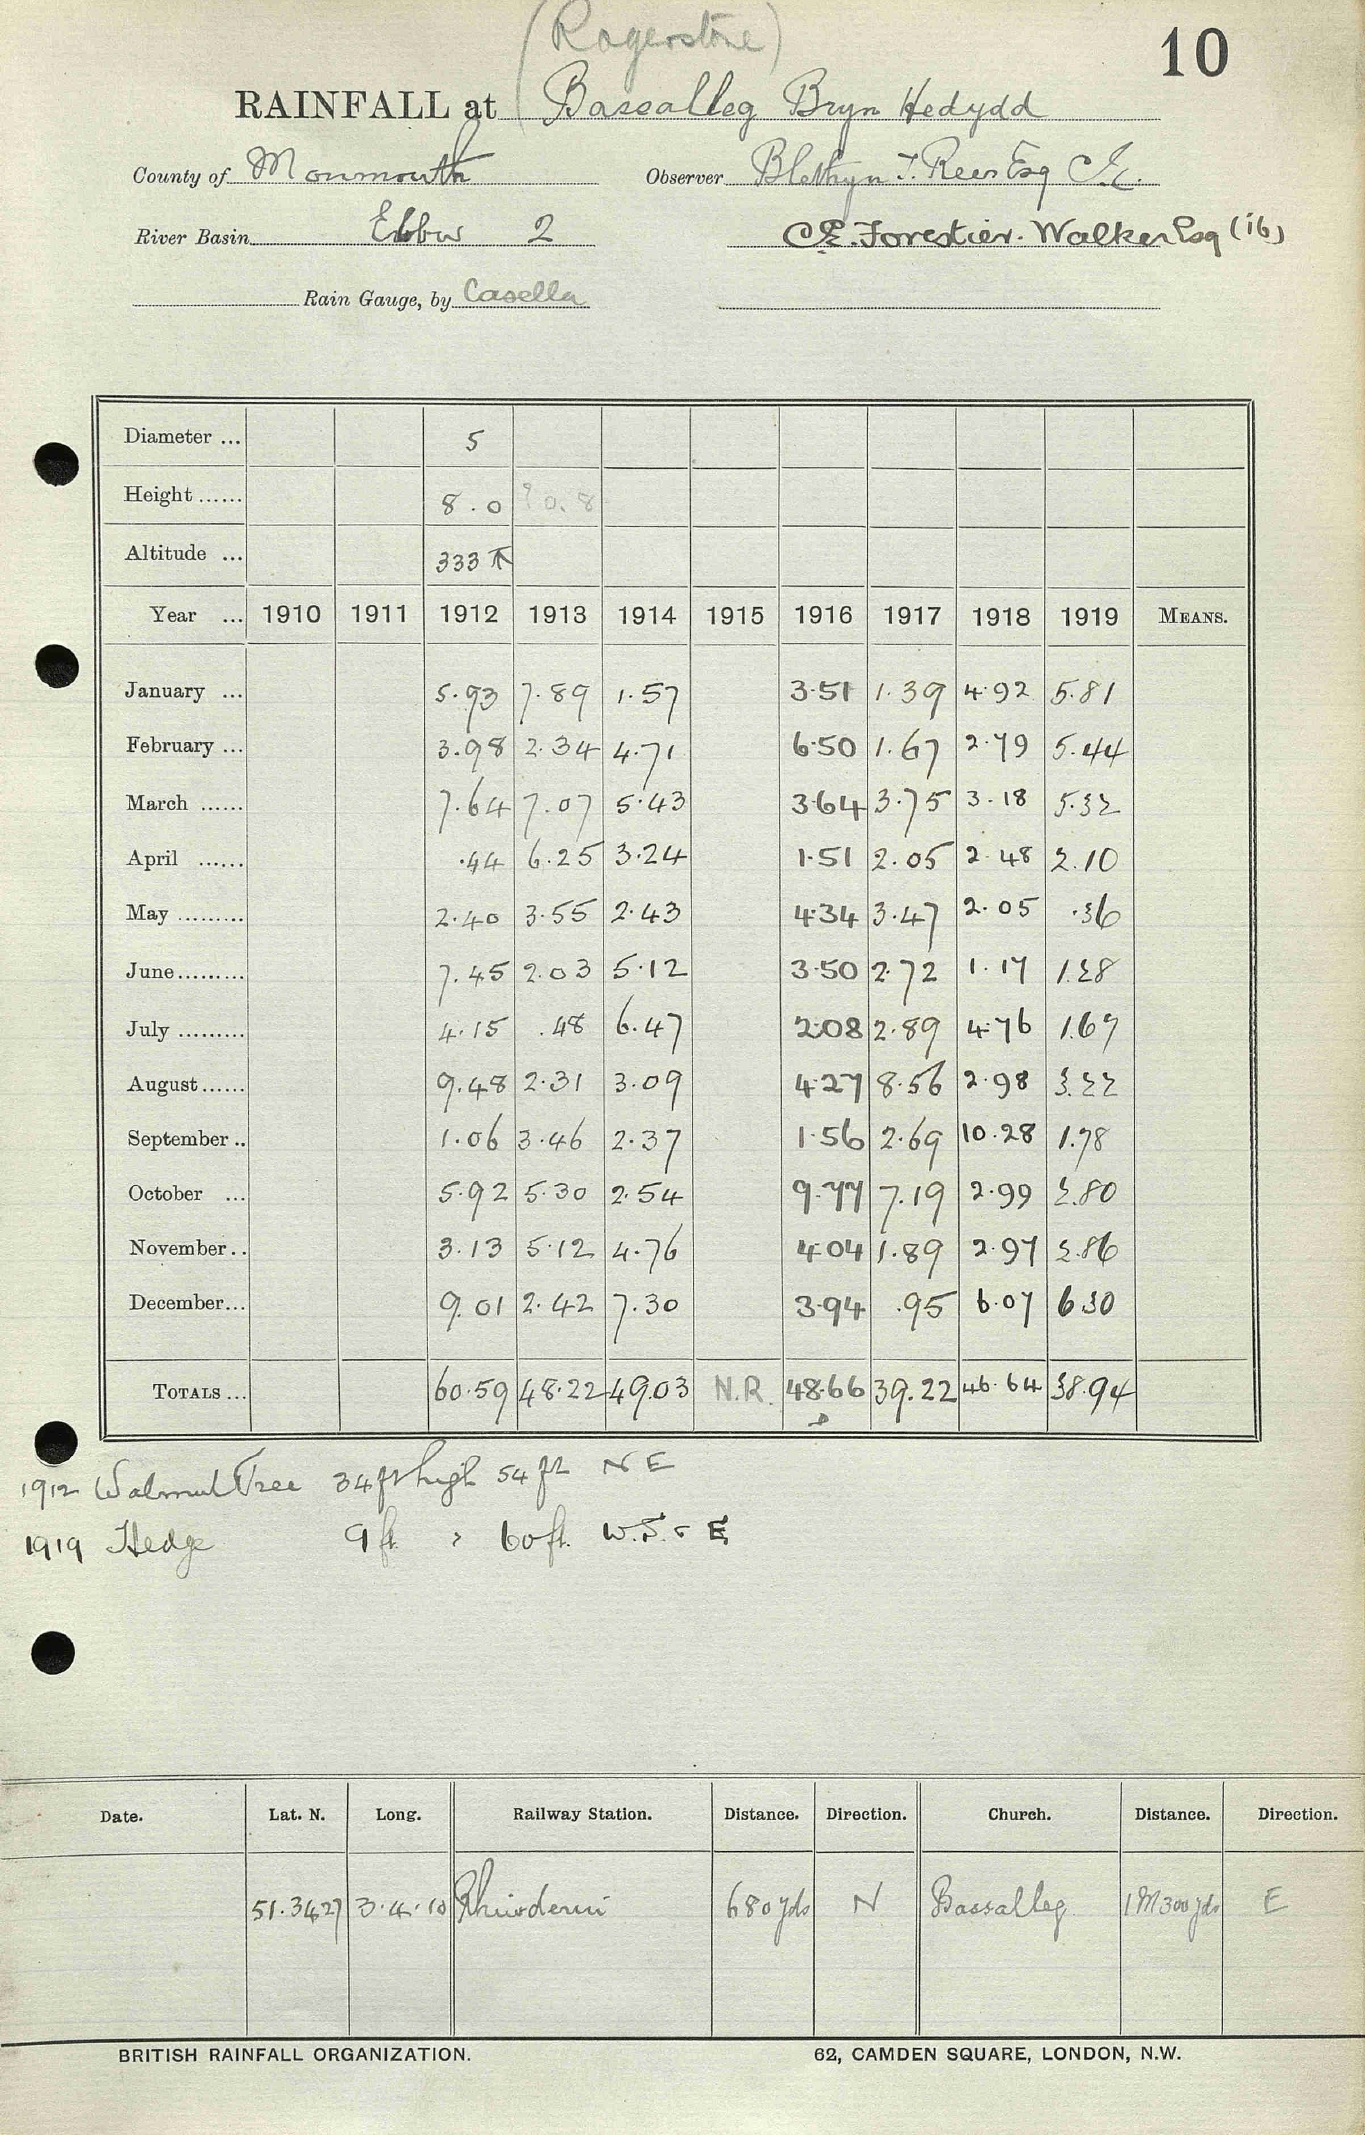 (Rogerstone)
10
RAINFALL at Bassalleg Bryn Hedydd
County of Monmouth Observer Blethyn T. Rees Esq C.E.
River Basin Ebbw 2 C.E. Forestier-Walker Esq (16)
Rain Gauge, by Casella
Diameter ... 5
Height ...... 8.0 ?0.8
Altitude ... 333
Year ... 1910 1911 1912 1913 1914 1915 1916 1917 1918 1919 MEANS.
January ... 5.93 7.89 1.57 3.51 1.39 4.92 5.81
February ... 3.98 2.34 4.71 6.50 1.67 2.79 5.44
March ...... 7.64 7.07 5.43 3.64 3.75 3.18 5.32
April ...... .44 6.25 3.24 1.51 2.05 2.48 2.10
May ......... 2.40 3.55 2.43 4.34 3.47 2.05 .36
June......... 7.45 2.03 5.12 3.50 2.72 1.17 1.28
July ......... 4.15 .48 6.47 2.08 2.89 4.76 1.67
August...... 9.48 2.31 3.09 4.27 8.56 2.98 3.22
September .. 1.06 3.46 2.37 1.56 2.69 10.28 1.78
October ... 5.92 5.30 2.54 9.77 7.19 2.99 2.80
November.. 3.13 5.12 4.76 4.04 1.89 2.97 2.86
December... 9.01 2.42 7.30 3.94 .95 6.07 6.30
TOTALS ... 60.59 48.22 49.03 N.R. 48.66 39.22 46.64 38.94
1912 Walnut Tree 34 ft high 54 ft N E
1919 Hedge 9 ft. " 60 ft. W. S. & E
Date. Lat. N. Long. Railway Station. Distance. Direction. Church. Distance. Direction.
51.34.27 3.4.10 Rhiwderin 680 yds N Bassalleg 1 M 300 yds E
BRITISH RAINFALL ORGANIZATION. 62, CAMDEN SQUARE, LONDON, N.W.